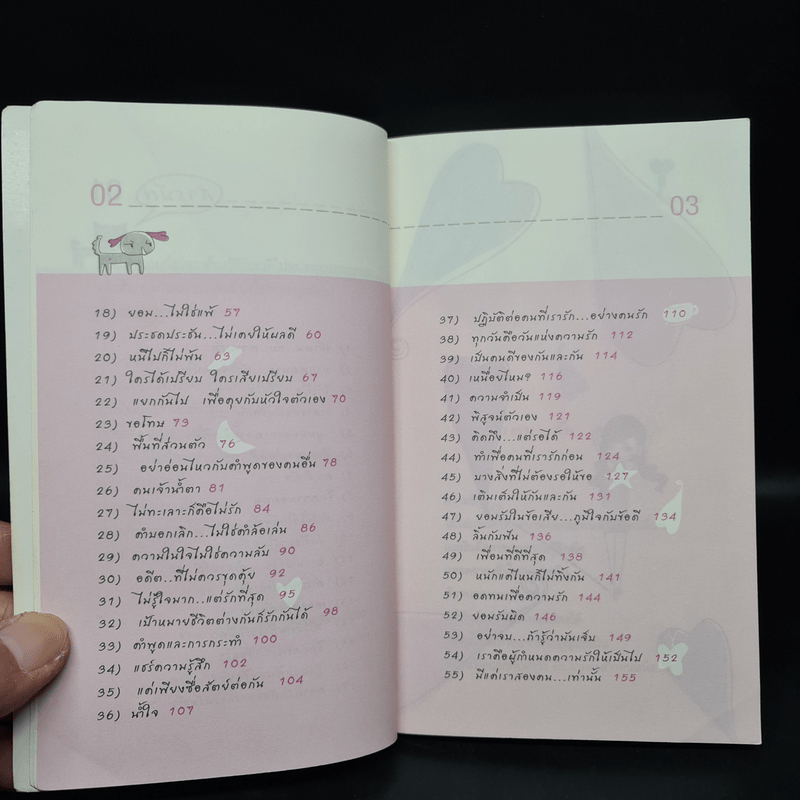 02
18) ยอม...ไม่ใช่แพ้ 57
19) ประชดประชัน...ไม่เคยให้ผลดี 60
20) หนีไปก็ไม่พ้น 63
21) ใครได้เปรียบ ใครเสียเปรียบ 67
22) แยกกันไป เพื่อคุยกับหัวใจตัวเอง 70
23) ขอโทษ 73
24) พื้นที่ส่วนตัว 76
25) อย่าอ่อนไหวกับคำพูดของคนอื่น 78
26) คนเจ้าน้ำตา 81
27) ไม่ทะเลาะก็คือไม่รัก 84
28) คำบอกเลิก...ไม่ใช่คำล้อเล่น 86
29) ความในใจไม่ใช่ความลับ 90
30) อดีต..ที่ไม่ควรขุดคุ้ย 92
31) ไม่รู้ใจมาก..แต่รักที่สุด 95
32) เป้าหมายชีวิตต่างกันก็รักกันได้ 98
33) คำพูดและการกระทำ 100
34) แชร์ความรู้สึก 102
35) แค่เพียงซื่อสัตย์ต่อกัน 104
36) น้ำใจ 107
03
37) ปฏิบัติต่อคนที่เรารัก...อย่างคนรัก 110
38) ทุกวันคือวันแห่งความรัก 112
39) เป็นคนดีของกันและกัน 114
40) เหนื่อยไหม? 116
41) ความจำเป็น 119
42) พิสูจน์ตัวเอง 121
43) คิดถึง...แต่รอได้ 122
44) ทำเพื่อคนที่เรารักก่อน 124
45) บางสิ่งที่ไม่ต้องรอให้ขอ 127
46) เติมเต็มให้กันและกัน 131
47) ยอมรับในข้อเสีย...ภูมิใจกับข้อดี 134
48) ลิ้นกับฟัน 136
49) เพื่อนที่ดีที่สุด 138
50) หนักแค่ไหนก็ไม่ทิ้งกัน 141
51) อดทนเพื่อความรัก 144
52) ยอมรับผิด 146
53) อย่าจบ...ถ้ารู้ว่ามันเจ็บ 149
54) เราคือผู้กำหนดความรักให้เป็นไป 152
55) มีแค่เราสองคน...เท่านั้น 155